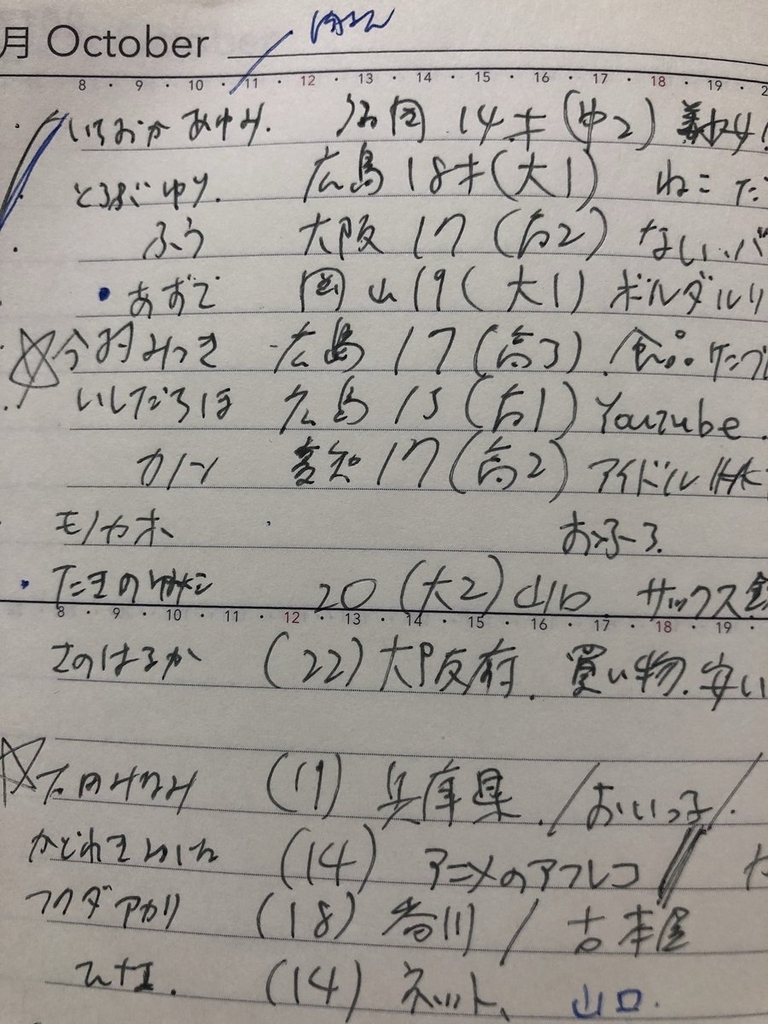 月 October
8・9・10・11・12・13・14・15・16・17・18・19・2
いちおか あゆみ. 14才(中2)
ゆり. 広島 18才(大1) ねこ
ふう 大阪 17(高2) ない.バ
あずさ 岡山 19(大1) ボルダリ
今村みづき 広島 17(高3) /食品
いしだちほ 広島 15(高1) Youtube.
カノン 高知 17(高2) アイドル
モノカオ おふろ.
たきの 20(大2) 山口 サックス
8・9・10・11・12・13・14・15・16・17・18・19・
さのはるか (22) 大阪府. 買い物.安い
みなみ (19) 兵庫県./おいっ子/
(14) アニメのアフレコ
フクダアカリ (18) 香川 / 古本屋
ひな. (14) ネット、山口.